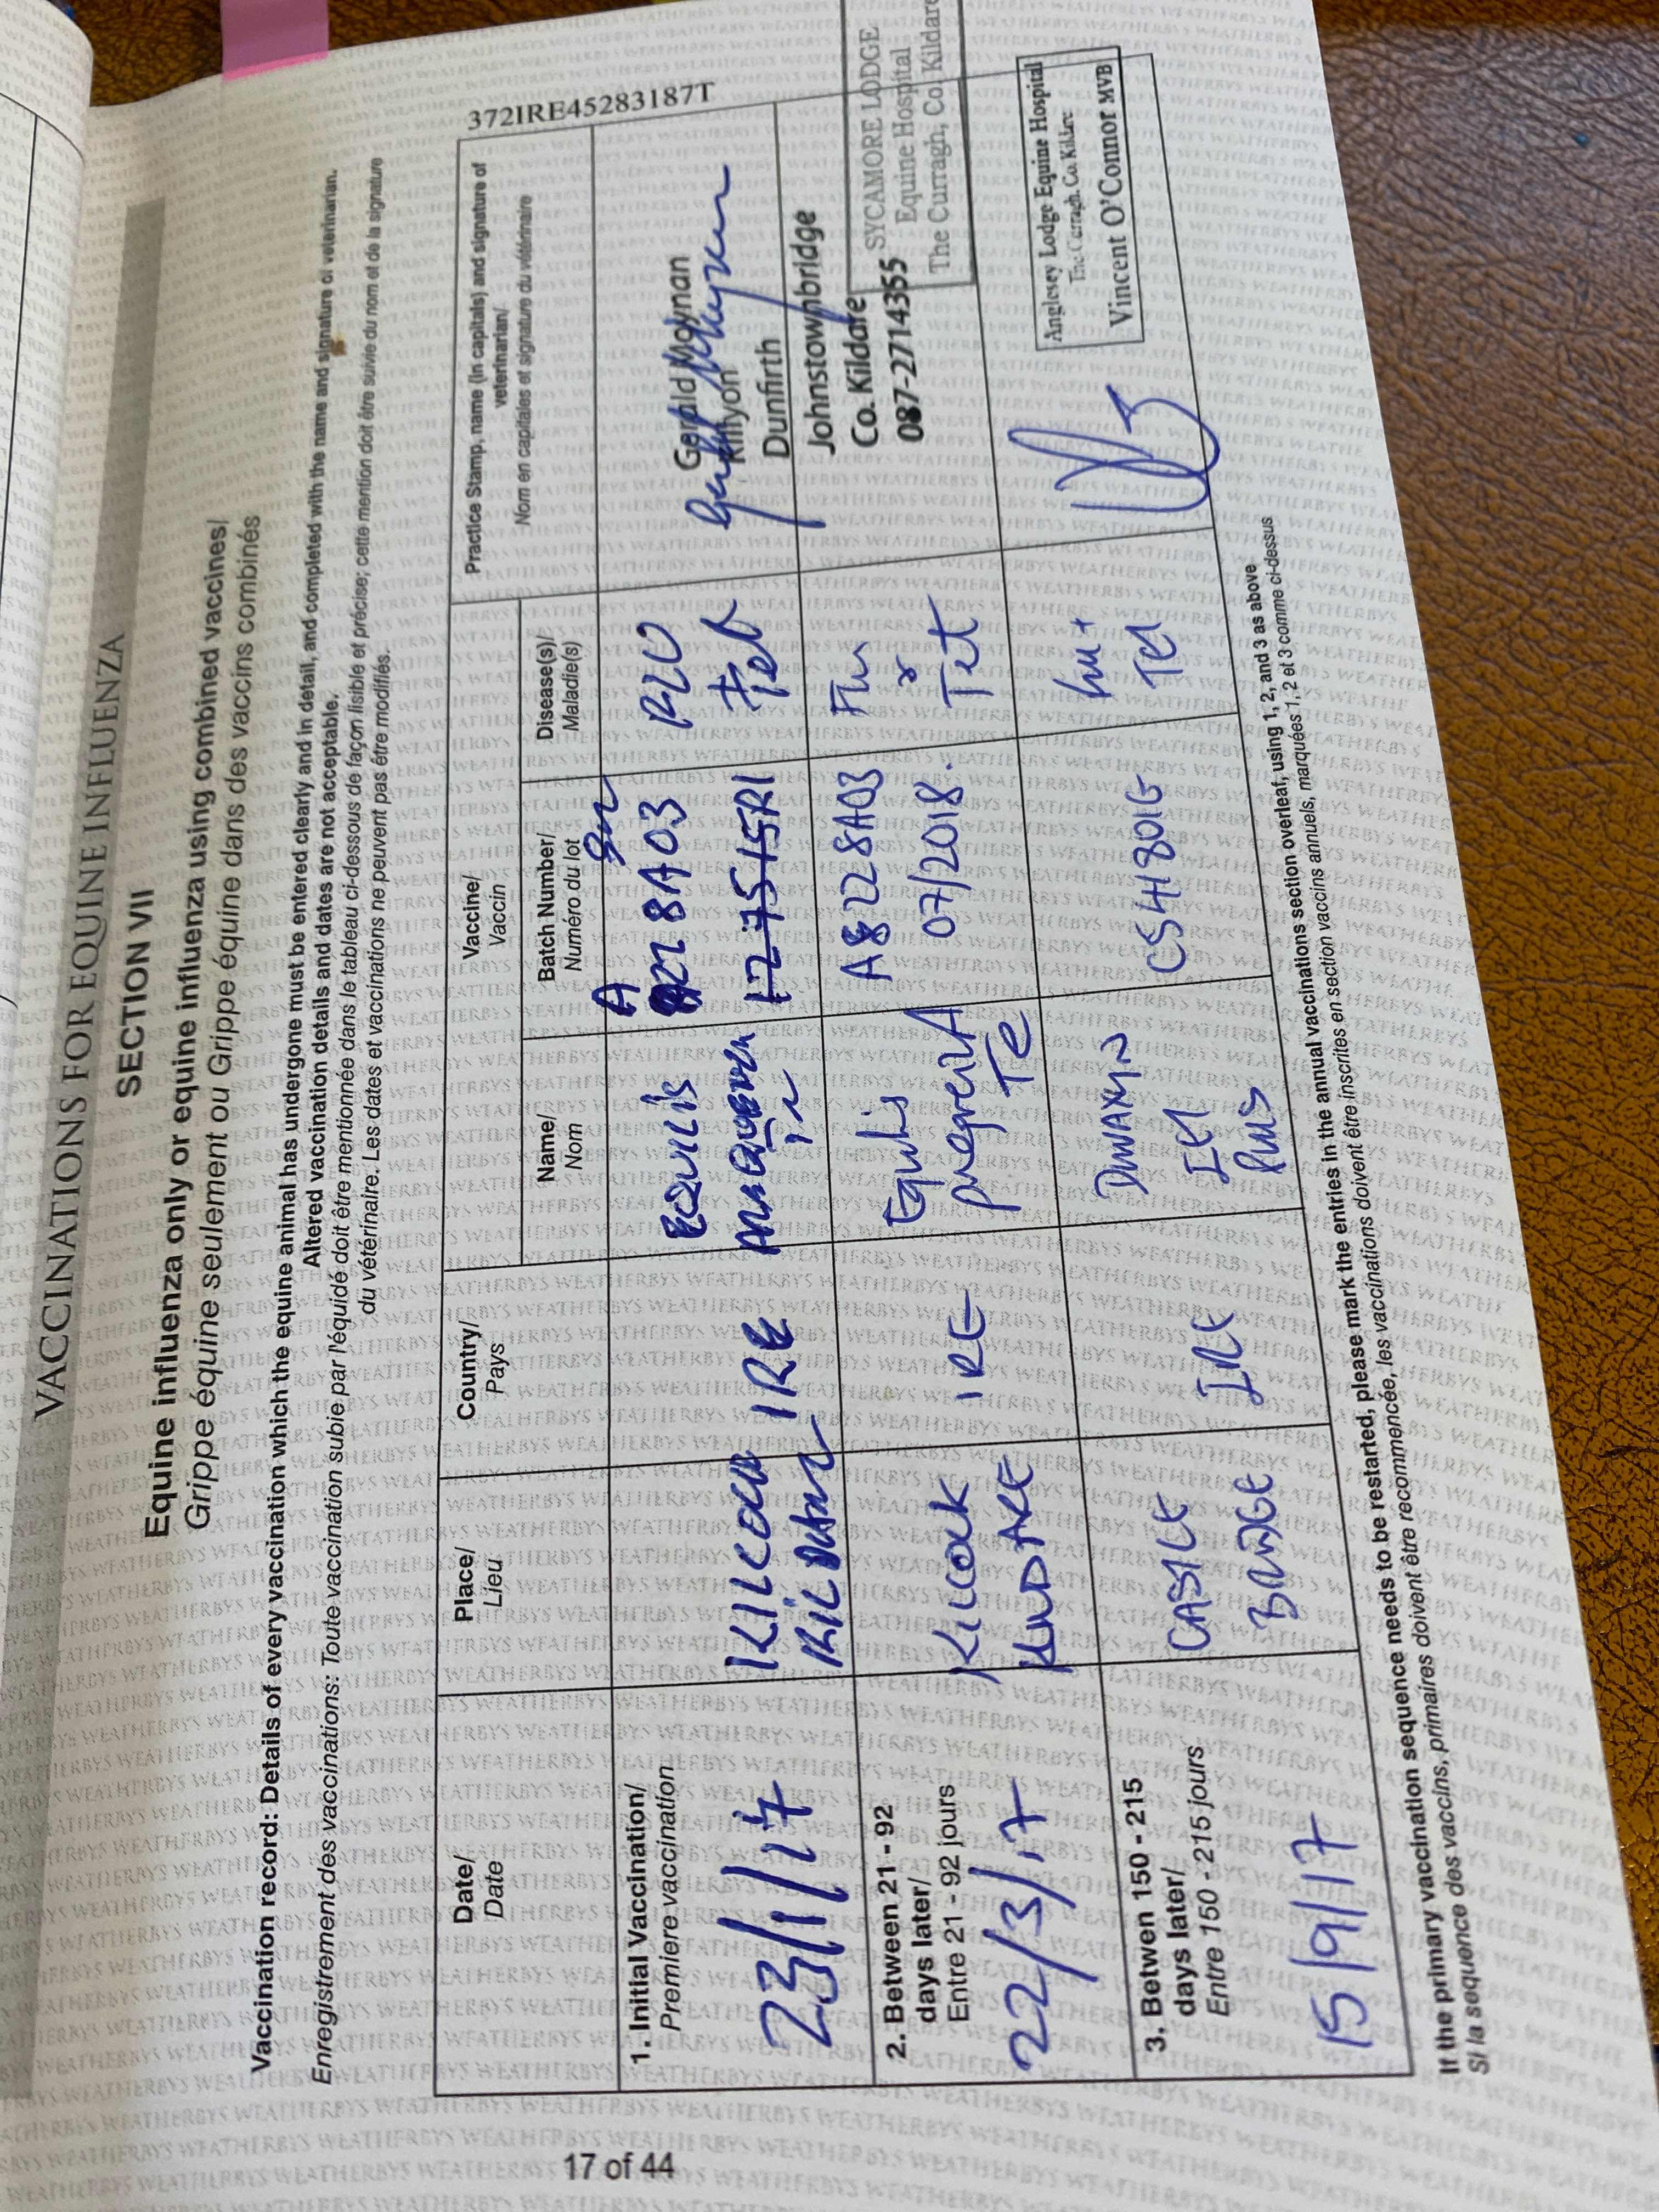 VACCINATIONS FOR EQUINE INFLUENZA
SECTION VII
Equine influenza only or equine influenza using combined vaccines/
Grippe équine seulement ou Grippe équine dans des vaccins combinés
Vaccination record: Details of every vaccination which the equine animal has undergone must be entered clearly and in detail, and completed with the name and signature of veterinarian.
Altered vaccination details and dates are not acceptable.
Enregistrement des vaccinations: Toute vaccination subie par l'équidé doit être mentionnée dans le tableau ci-dessous de façon lisible et précise; cette mention doit être suivie du nom et de la signature
du vétérinaire. Les dates et vaccinations ne peuvent pas être modifiés.
372IRE45283187T
Date/
Date
Place/
Lieu
Country/
Pays
Vaccine/
Vaccin
Name/
Nom
Batch Number/
Numéro du lot
Disease(s)/
Maladie(s)
Practice Stamp, name (in capitals) and signature of
veterinarian/
Nom en capitales et signature du vétérinaire
1. Initial Vaccination/
Premiere vaccination
23/1/17
KILCOCK
KILDARE
IRE
EQUILIS
A
228A03
12751SR1
FLU
+ Tet
Gerald Moynan
Rhyon
Dunfirth
Johnstownbridge
Co. Kildare
087-2714355
2. Between 21 - 92
days later/
Entre 21 - 92 jours
22/3/17
Kilcock
KILDARE
IRE
Equilis
prequenza
Te
A8228A03
07/2018
Flu
&
Tet
SYCAMORE LODGE
Equine Hospital
The Curragh, Co. Kildare
3. Between 150 - 215
days later/
Entre 150 - 215 jours
15/9/17
CASTLE
BRIDGE
IRE
DUVAXYN
IET
PLUS
C541801G
Flu +
Tet
Anglesey Lodge Equine Hospital
The Curragh, Co. Kildare
Vincent O'Connor MVB
If the primary vaccination sequence needs to be restarted, please mark the entries in the annual vaccinations section overleaf, using 1, 2, and 3 as above
Si la sequence des vaccins, primaires doivent être recommencée, les vaccinations doivent être inscrites en section vaccins annuels, marquées 1, 2 et 3 comme ci-dessus
17 of 44